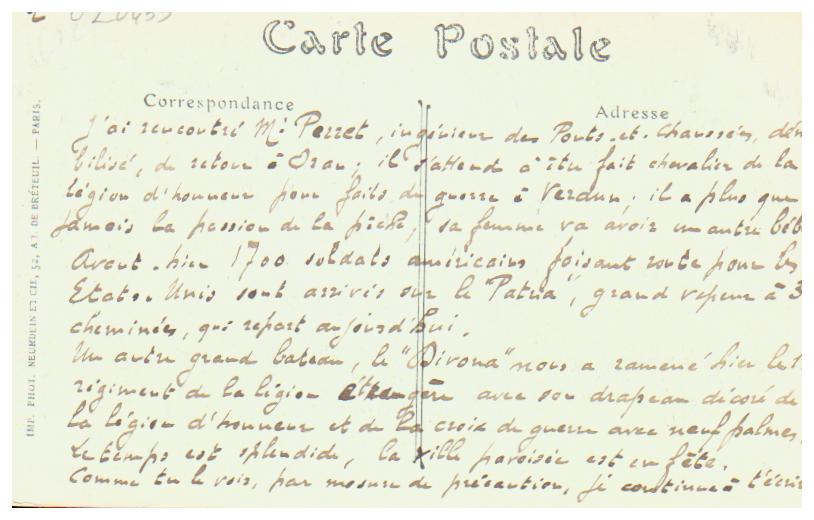 Carte Postale
Correspondance
Adresse
J'ai rencontré Mr Perret, ingénieur des Ponts-et-Chaussées, dém
bilisé, de retour à Oran; il s'attend à être fait chevalier de la
légion d'honneur pour faits de guerre à Verdun; il a plus que
jamais la passion de la pêche, sa femme va avoir un autre béb
Avant-hier 1700 soldats américains faisant route pour les
Etats-Unis sont arrivés sur le "Patria", grand vapeur à 3
cheminées, qui repart aujourd'hui.
Un autre grand bateau, le "Divona" nous a ramené hier le 1
régiment de la légion étrangère avec son drapeau décoré de
la légion d'honneur et de la croix de guerre avec neuf palmes.
Le temps est splendide, la ville pavoisée est en fête.
Comme tu le vois, par mesure de précaution, je continue à t'écrir
IMP. PHOT. NEURDEIN ET CIE, 52, AV. DE BRÉTEUIL. — PARIS.